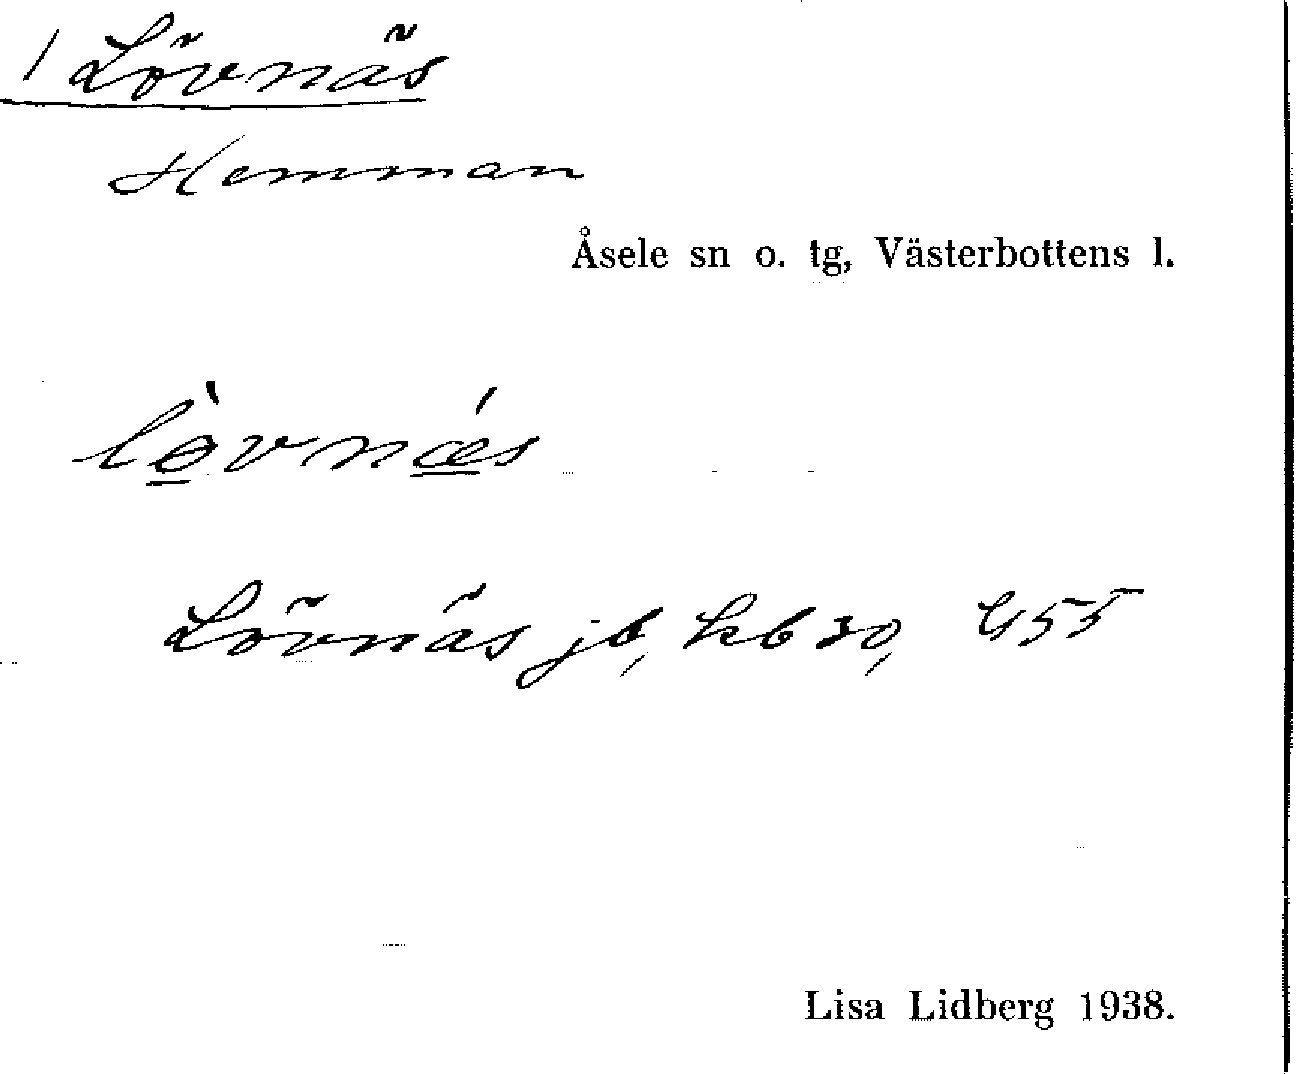 1 Lövnäs
Hemman
Åsele sn o. tg, Västerbottens l.
lə̀vnǽs
Lövnäs jb, kb 30, G55
Lisa Lidberg 1938.